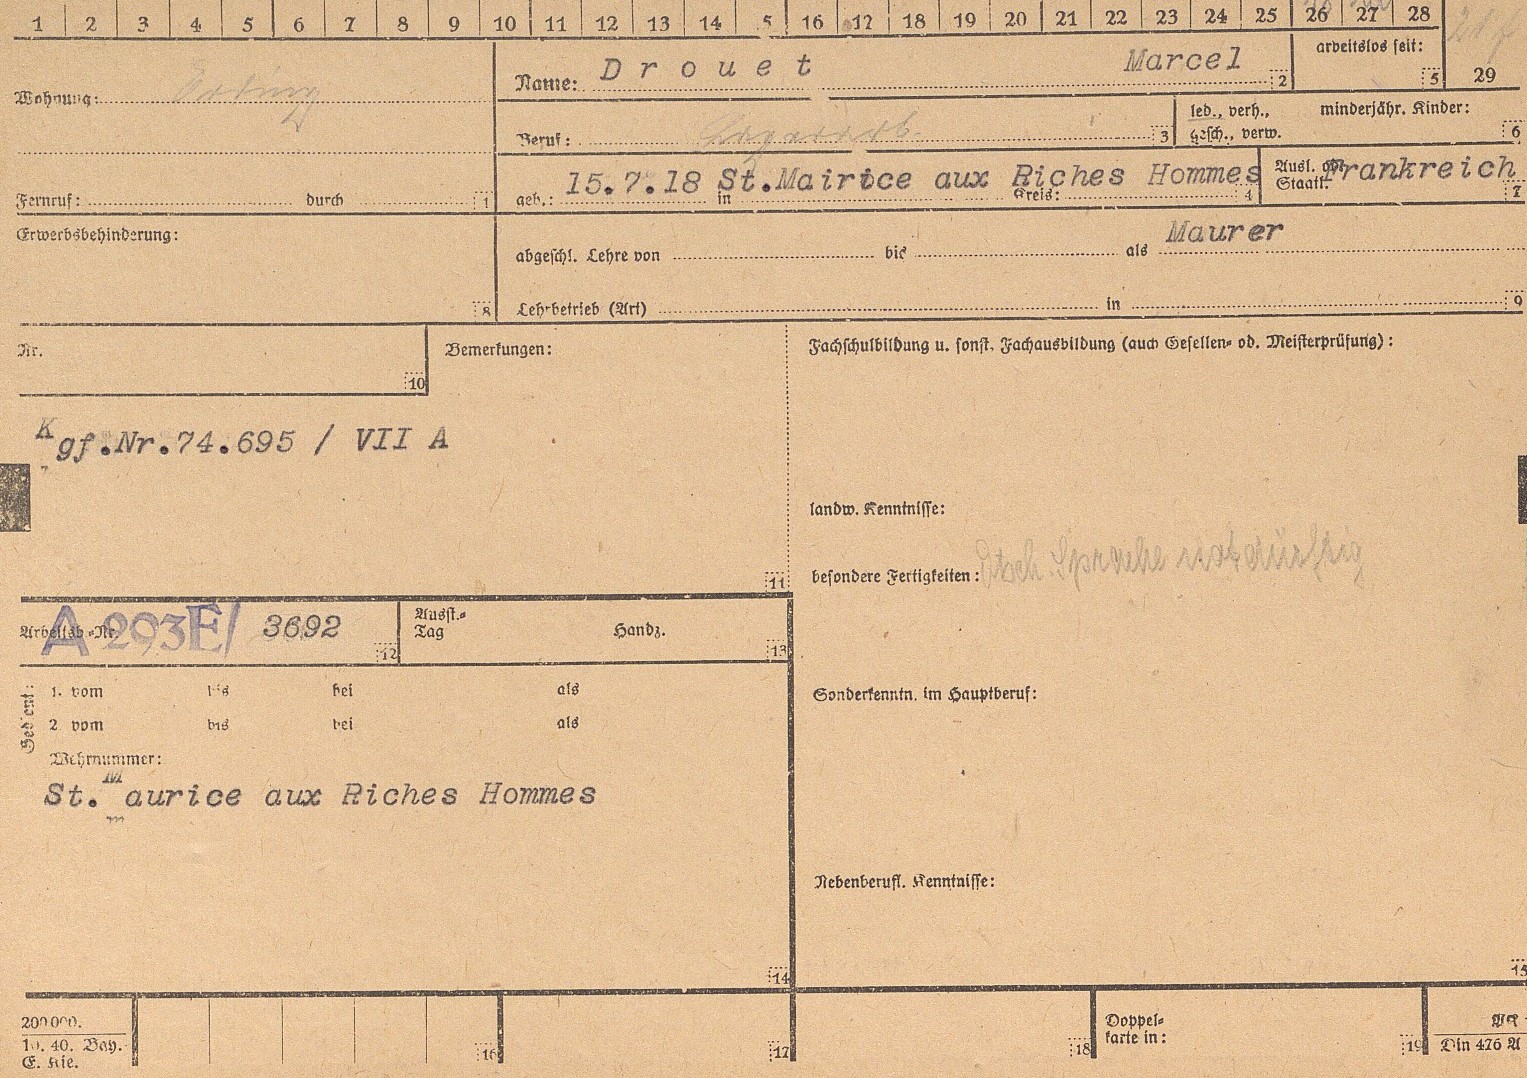 1 2 3 4 5 6 7 8 9 10 11 12 13 14 5 16 17 18 19 20 21 22 23 24 25 26 27 28 29
Wohnung: Erding
Name: Drouet Marcel 2
arbeitslos seit: 5
Beruf: 3
led., verh., minderjähr. Kinder:
gesch., verw. 6
Fernruf: durch 1
geb.: 15.7.18 in St.Mairice aux Riches Hommes Kreis: 4
Ausl. Staat: Frankreich 7
Erwerbsbehinderung: 8
abgeschl. Lehre von bis als Maurer
Lehrbetrieb (Art) in 9
Nr. 10
Bemerkungen:
Fachschulbildung u. sonst. Fachausbildung (auch Gesellen- od. Meisterprüfung):
Kgf.Nr.74.695 / VII A
landw. Kenntnisse:
besondere Fertigkeiten: Dtsch. Sprache notdürftig
11
Arbeitsb.-Nr. A 293E/ 3692 12
Ausst.-Tag Handz. 13
Gedient:
1. vom bis bei als
2 vom bis bei als
Sonderkenntn. im Hauptberuf:
Wehrnummer:
St.Maurice aux Riches Hommes
Nebenberufl. Kenntnisse:
14 15
200000.
10. 40. Bay.
E. Kie.
16 17 18
Doppel-
karte in: 19
Din 476 A